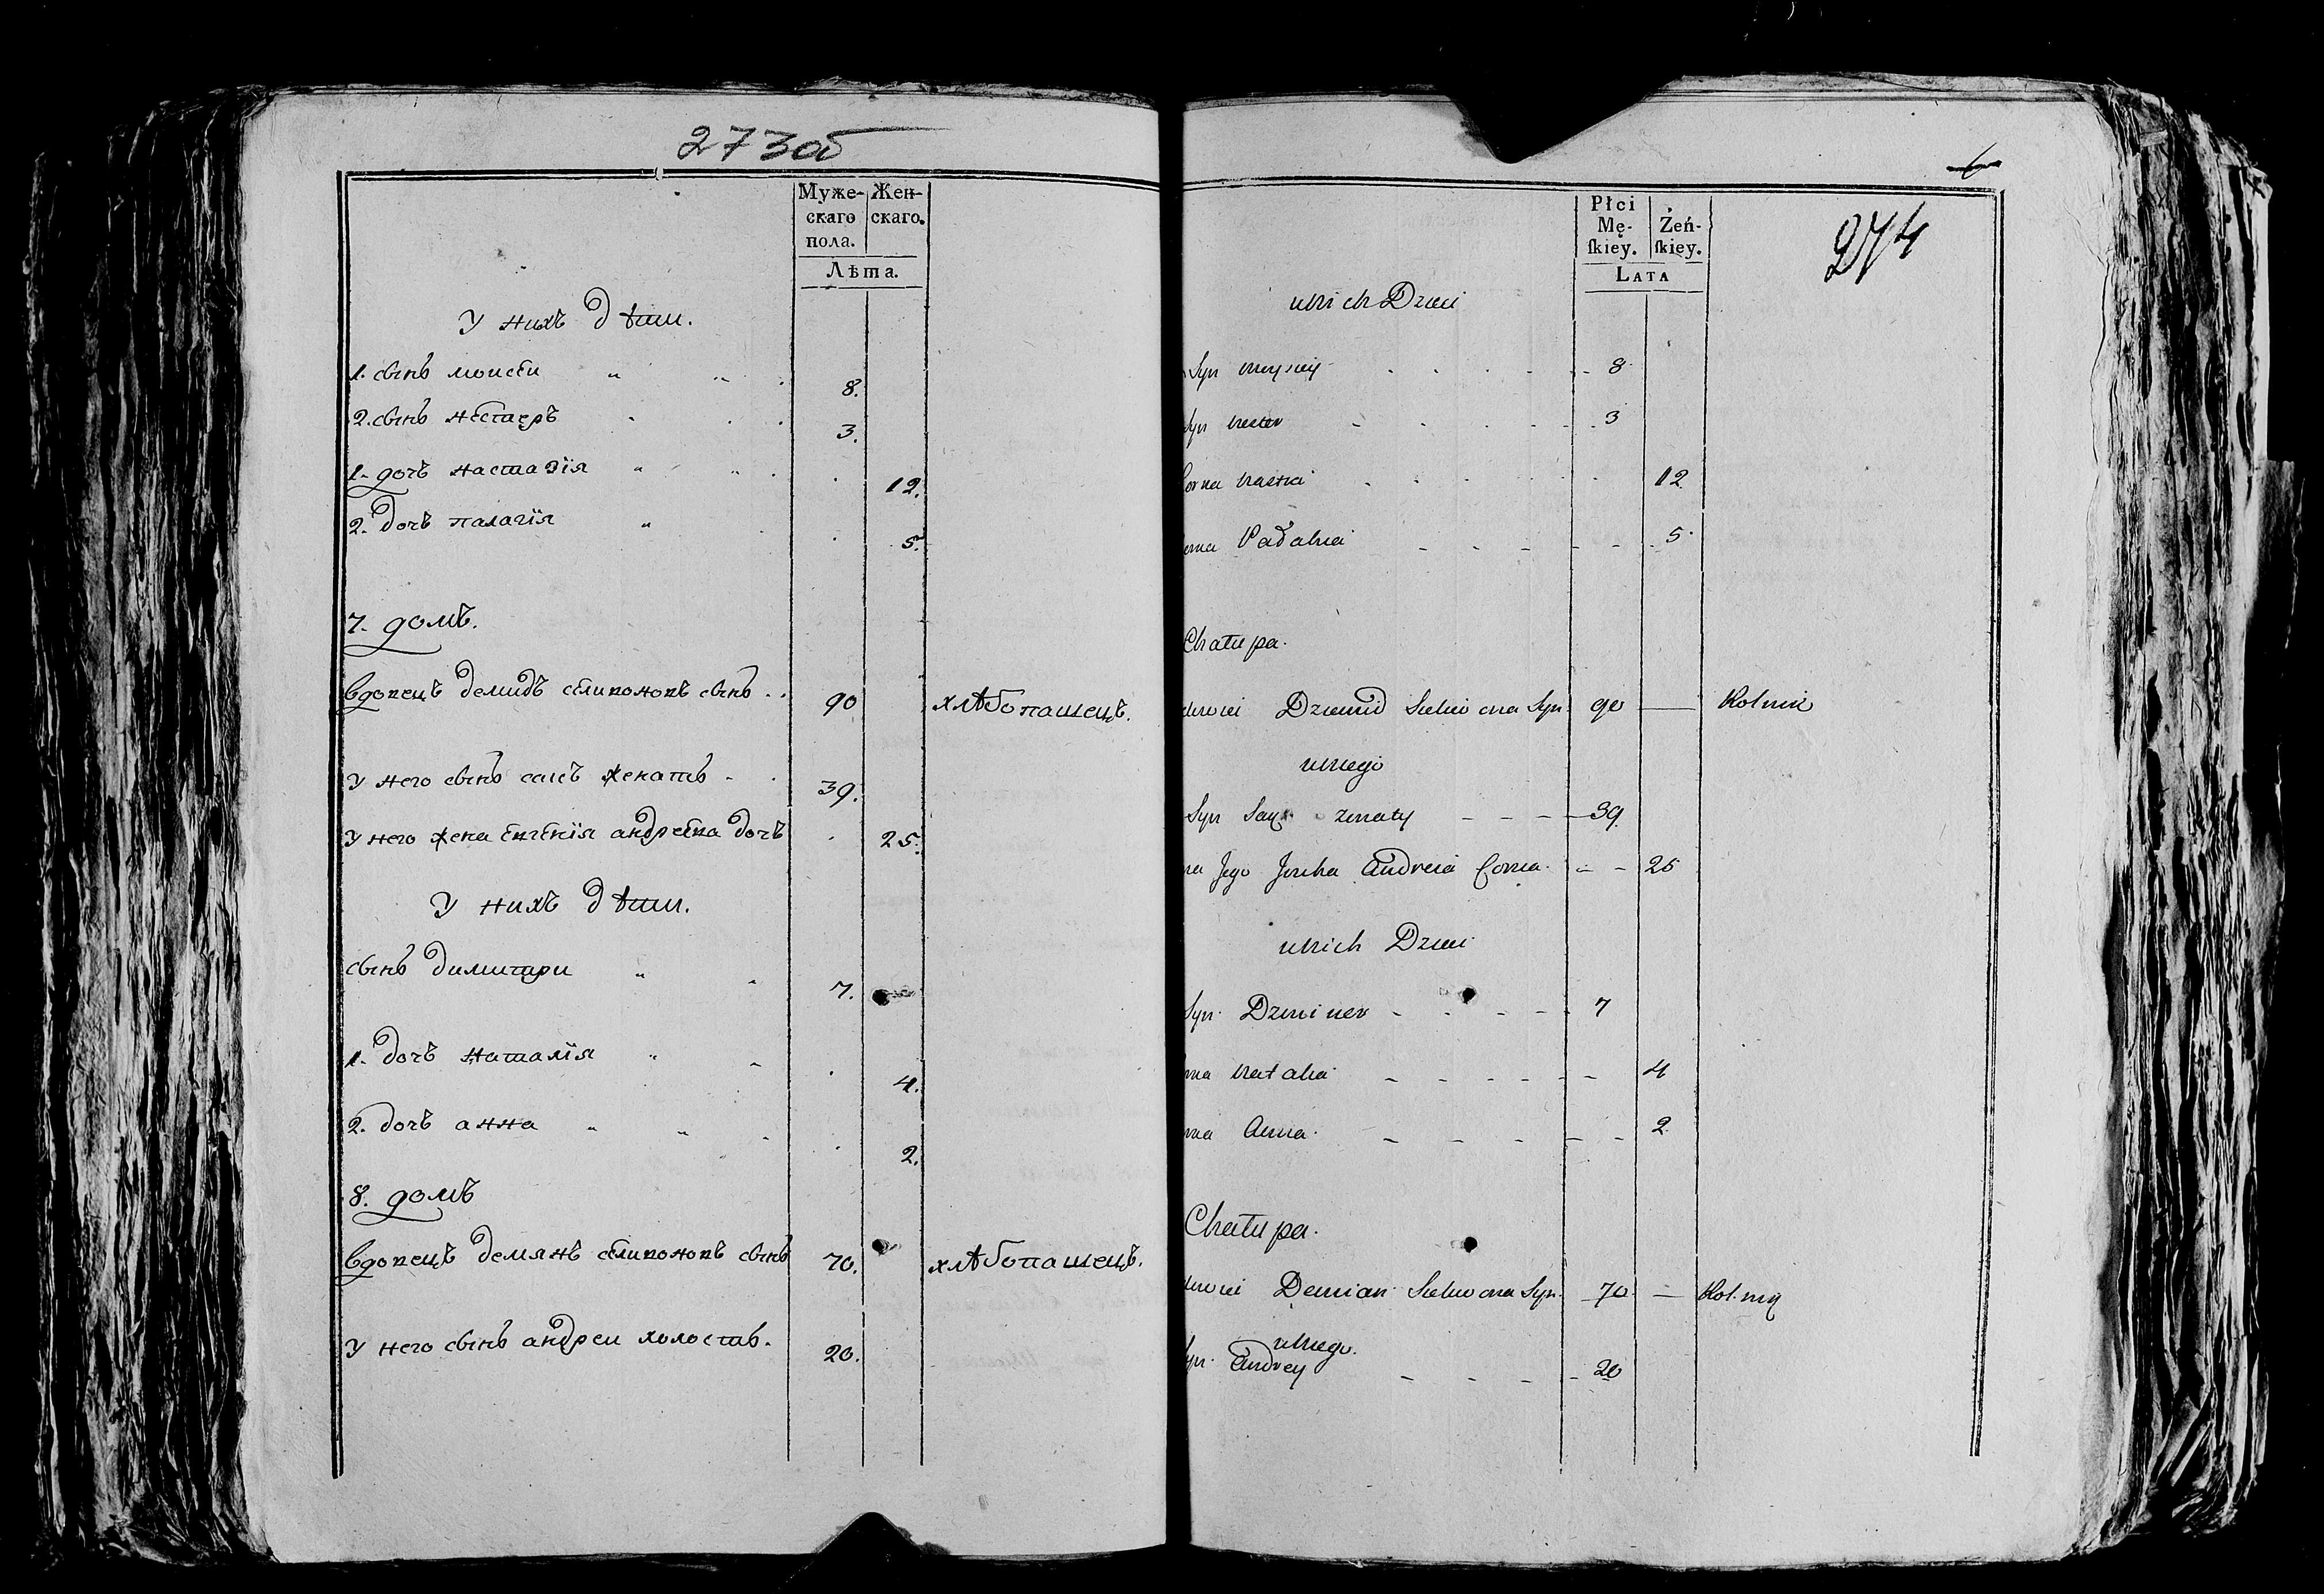 273об
Муже- Жен-
скаго скаго.
пола.
Лѣта.
У нихъ дѣти.
1. сынъ моисеи 8.
2. сынъ нестеръ 3.
1. дочъ настазїя 12.
2. дочъ палагїя 5.
7. домъ.
вдовецъ демидъ селивоновъ сынъ 90 хлѣбопашецъ.
У него сынъ саеъ женатъ 39.
У него жена евгенїя андреева дочъ 25.
У нихъ дѣти.
сынъ димитри 7.
1. дочъ наталїя 4.
2. дочъ анна 2.
8. домъ
вдовецъ демянъ селивоновъ сынъ 70. хлѣбопашецъ.
У него сынъ андреи холостъ. 20.
6
274
Płci
Mę- Żeń-
ſkiey. ſkiey.
LATA
unich Dzieci
Syn moysiey 8
Syn nester 3
Corka nastia 12
5
Chałupa.
Dziemid Seliwona Syn 90 Rolnik
uniego
Syn Żonaty 39
Jego Andreia Corka 25
unich Dzieci
Syn Dzmiter 7
Natalia 4
Anna 2
Chałupa.
Demian Seliwona Syn 70 Rolnik
uniego
Syn Andrey 20